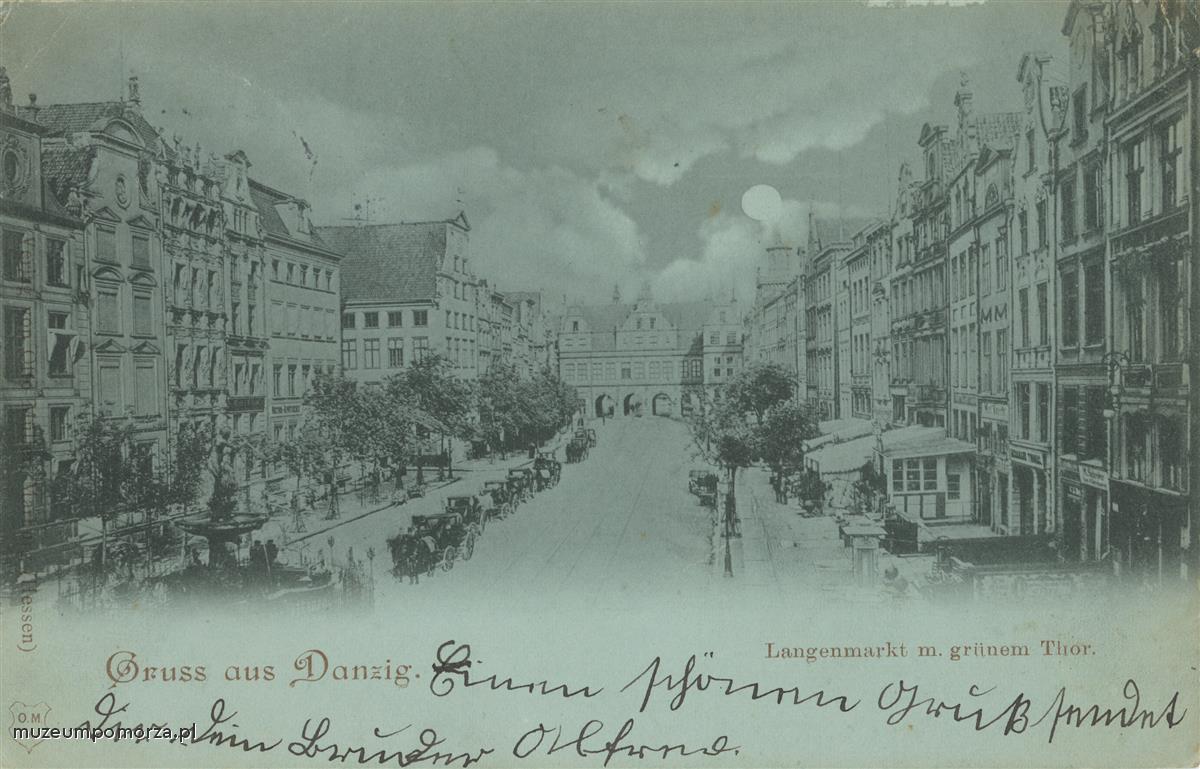 MM
Hessen)
Langenmarkt m. grünem Thor.
Gruss aus Danzig. Einen schönen Gruß sendet
Dir dein Bruder Alfred.
O.M
muzeumpomorza.pl